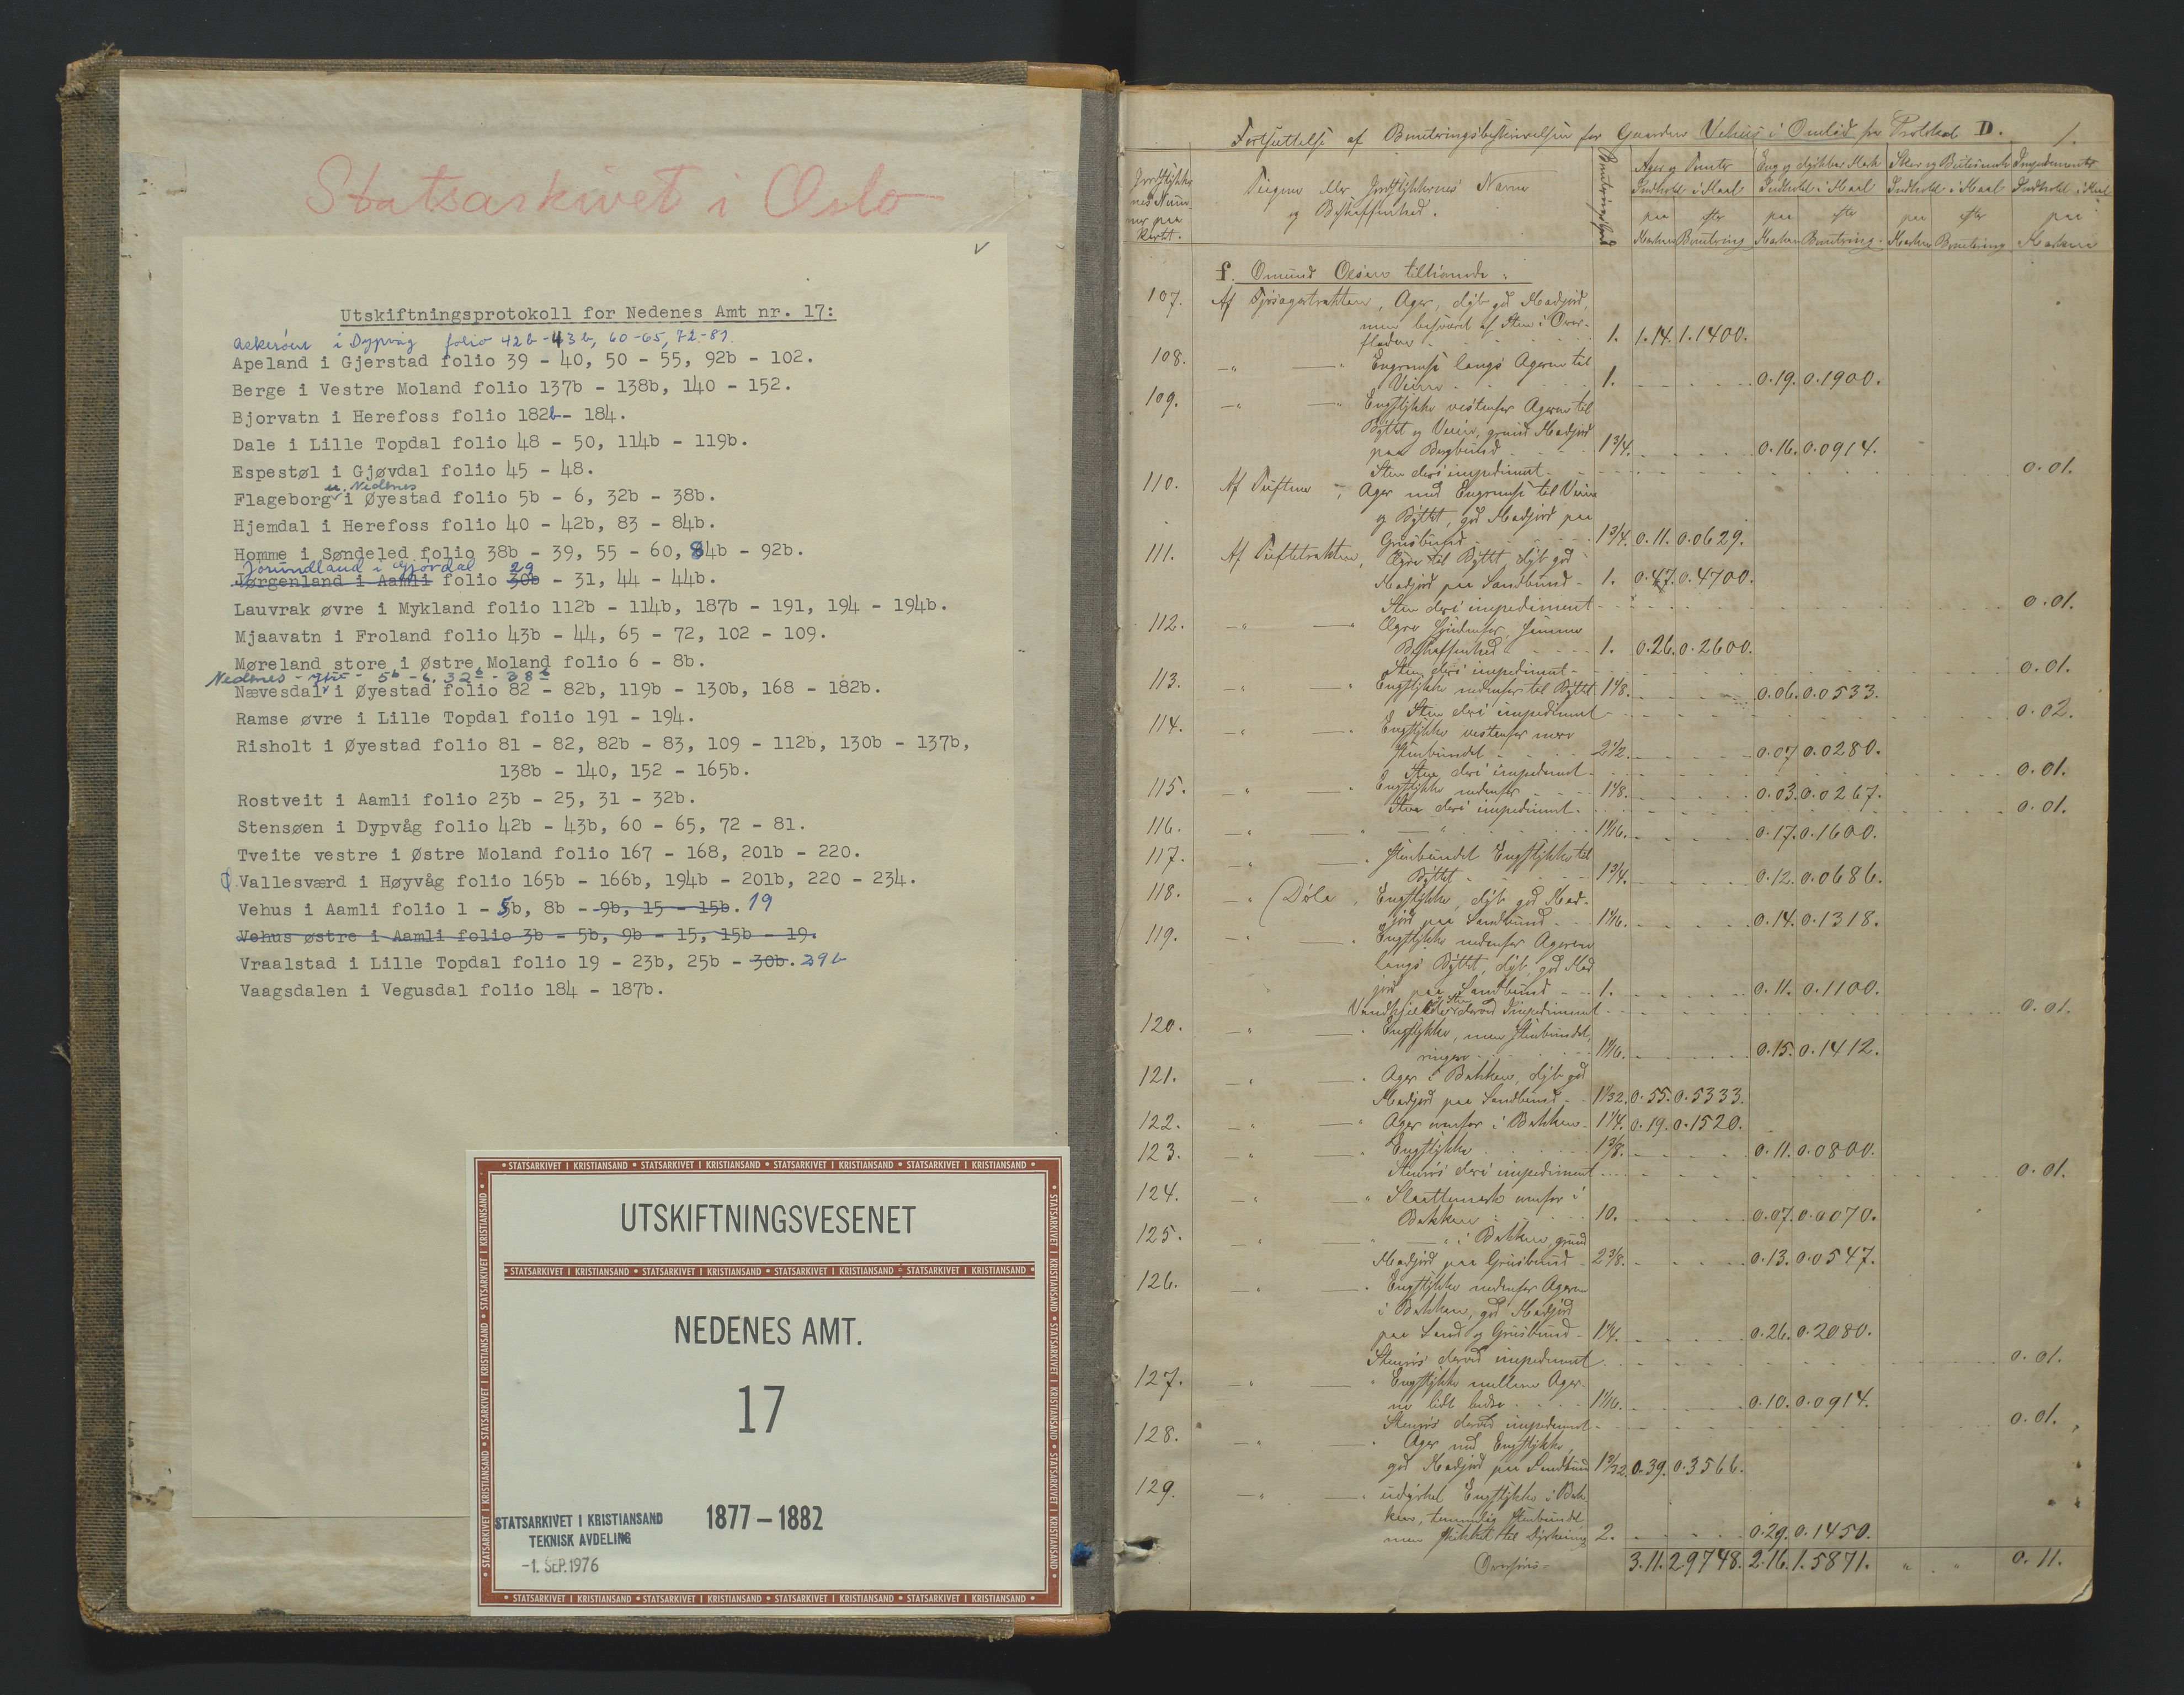 Statsarkivet i Oslo
Utskiftningsprotokoll for Nedenes Amt nr. 17:
Askerøen i Dypvåg folio 42b - 43b, 60-65, 72-81.
Apeland i Gjerstad folio 39 - 40, 50 - 55, 92b - 102.
Berge i Vestre Moland folio 137b - 138b, 140 - 152.
Bjorvatn i Herefoss folio 182b - 184.
Dale i Lille Topdal folio 48 - 50, 114b - 119b.
Espestøl i Gjøvdal folio 45 - 48.
u. Nedenes
Flageborg i Øyestad folio 5b - 6, 32b - 38b.
Hjemdal i Herefoss folio 40 - 42b, 83 - 84b.
Homme i Søndeled folio 38b - 39, 55 - 60, 84b - 92b.
Jorundland i Gjövdal 29
Jørgenland i Aamli folio 30b - 31, 44 - 44b.
Lauvrak øvre i Mykland folio 112b - 114b, 187b - 191, 194 - 194b.
Mjaavatn i Froland folio 43b - 44, 65 - 72, 102 - 109.
Møreland store i Østre Moland folio 6 - 8b.
Nedenes - 5b - 6, 32b - 38b
Nævesdal i Øyestad folio 82 - 82b, 119b - 130b, 168 - 182b.
Ramse øvre i Lille Topdal folio 191 - 194.
Risholt i Øyestad folio 81 - 82, 82b - 83, 109 - 112b, 130b - 137b,
138b - 140, 152 - 165b.
Rostveit i Aamli folio 23b - 25, 31 - 32b.
Stensøen i Dypvåg folio 42b - 43b, 60 - 65, 72 - 81.
Tveite vestre i Østre Moland folio 167 - 168, 201b - 220.
Vallesværd i Høyvåg folio 165b - 166b, 194b - 201b, 220 - 234.
Vehus i Aamli folio 1 - 5b, 8b - 9b, 15 - 15b. 19
Vehus østre i Aamli folio 3b - 5b, 9b - 15, 15b - 19.
Vraalstad i Lille Topdal folio 19 - 23b, 25b - 30b. 29b
Vaagsdalen i Vegusdal folio 184 - 187b.
UTSKIFTNINGSVESENET
STATSARKIVET I KRISTIANSAND
NEDENES AMT.
17
1877-1882
STATSARKIVET I KRISTIANSAND
TEKNISK AVDELING
-1. SEP. 1976
Fortsættelse af Boniteringsbeskrivelsen for Gaarden Vehus i Omlid fra Protokol D. 1.
Jordstykkernes Nummer paa Kartet.
Teigenes eller Jordstykkernes Navne og Beskaffenhed.
Ager og Tomter Indhold i Maal
Eng og dyrkbar Mark Indhold i Maal
Skov og Beitesmark Indhold i Maal
Impedimenter Indhold i Maal
paa Marken efter Bonitering paa Marken efter Bonitering paa Marken efter Bonitering paa Marken
f. Omund Olsen tilhørende:
107. Ager, dyb god Madjord,
men besværet af Sten i Over-
fladen 1. 1.14. 1.1400.
108. Engremse langs Ageren til
Veien 1. 0.19. 0.1900.
109. Engstykke vestenfor Ageren til
Byttet og Veien, grund Madjord
paa Bergbund 1 3/4. 0.16. 0.0914.
Sten deri impediment 0.01.
110. Af Tuftene, Ager med Engremse til Veien
og Byttet, god Madjord paa
Grusbund 1 3/4. 0.11. 0.0629.
111. Af Tuftetrakten, Agre til Byttet dyb god
Madjord paa Sandbund 1. 0.47. 0.4700.
Sten deri impediment 0.01.
112. Agre søndenfor, samme
Beskaffenhed 1. 0.26. 0.2600.
Sten deri impediment 0.01.
113. Engstykke nedenfor til Byttet 1 1/8. 0.06. 0.0533.
Sten deri impediment 0.02.
114. Engstykke vestenfor mere
stenbundet 2 1/2. 0.07. 0.0280.
Sten deri impediment 0.01.
115. Engstykke nedenfor 1 1/8. 0.03. 0.0267.
Sten deri impediment 0.01.
116. 1 1/16. 0.17. 0.1600.
117. stenbundet Engstykke til
Byttet 1 3/4. 0.12. 0.0686.
118. Engstykke, dyb god Mad-
jord paa Sandbund 1 1/16. 0.14. 0.1318.
119. Engstykke nedenfor Ageren
langs Byttet, dyb, god Mad
jord paa Sandbund 1. 0.11. 0.1100.
Impediment 0.01.
120. Engstykke, men stenbundet,
ringere 1 1/16. 0.15. 0.1412.
121. Ager i Bakken, dyb god
Madjord paa Sandbund 1 1/32. 0.55. 0.5333.
122. Ager ovenfor i Bakken 1 1/4. 0.19. 0.1520.
123. Engstykke 1 3/8. 0.11. 0.0800.
Stenrøs deri impediment 0.01.
124. Slaattemark ovenfor i
Bakken 10. 0.07. 0.0070.
125. i Bakken, grund
Madjord paa Grusbund 2 3/8. 0.13. 0.0547.
126. Engstykke nedenfor Ageren
i Bakken, god Madjord
paa Sand og Grusbund 1 1/4. 0.26. 0.2080.
Stenrøs derved impediment 0.01.
127. Engstykke mellem Ager-
ne lidt bedre 0.10. 0.0914.
Stenrøs derved impediment 0.01.
128. Ager med Engstykke,
god Madjord paa Sandbund 1 3/32. 0.39. 0.3566.
129. udyrket Engstykke i Bak-
ken, temmelig stenbundet
men skikket til Dyrkning 2. 0.29. 0.1450.
Overføres 3.11. 2.9748. 2.16. 1.5871. " " 0.11.